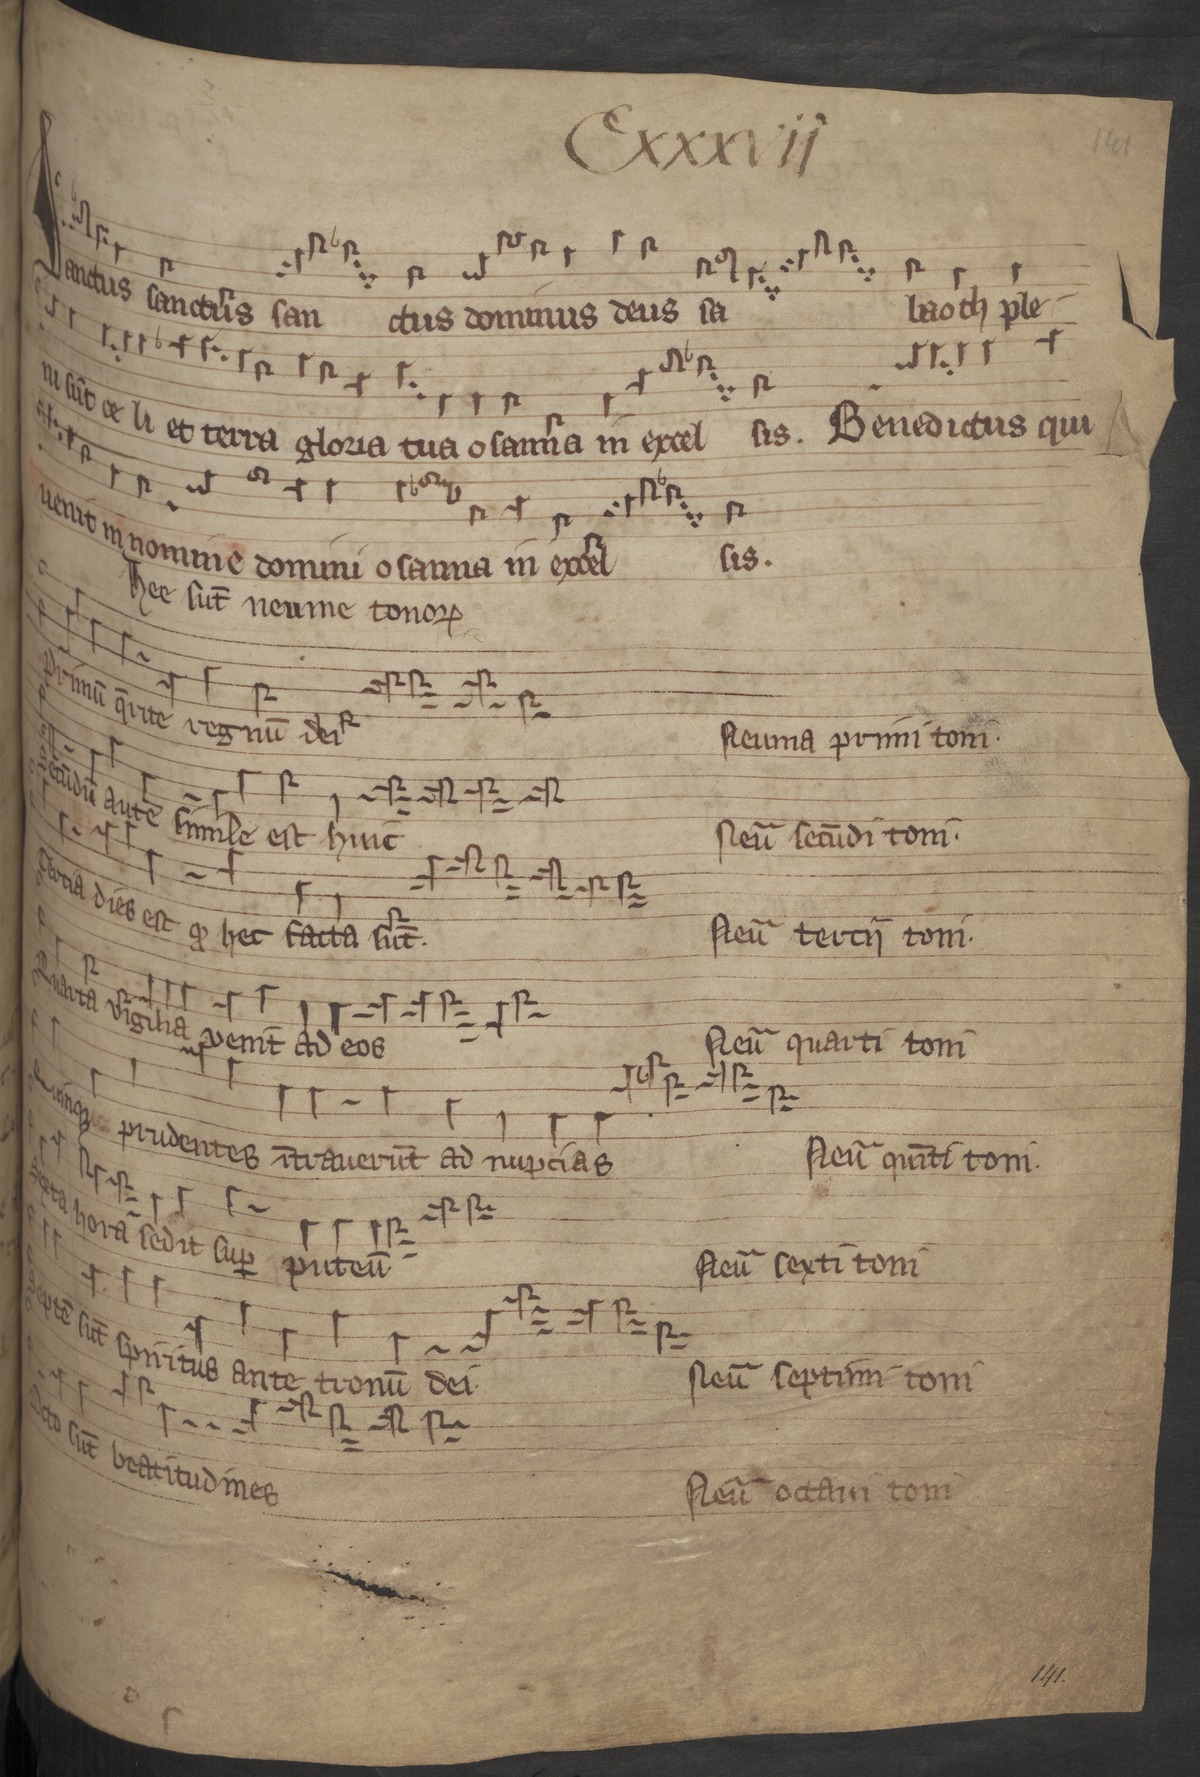 Cxxxvii
141
Sanctus sanctus san ctus dominus deus sa baoth ple
ni sūt ce li et terra gloria tua osanna in excel sis. Benedictus qui
uenit in nomine domini osanna in excel sis.
Hec sūt neume tonoꝝ
Primū q̄rite regnū dei Neuma primi toni.
Secūdū autē simile est huic Neūa secūdi toni.
Tercia dies est qͦ hec facta sūt. Neūa tercij toni.
Quarta vigilia venit ad eos Neūa quarti toni
Quinqꝫ prudentes ītrauerūt ad nupcias Neūa quīti toni.
Sexta hora sedit suꝑ puteū Neūa sexti toni
Septē sūt spiritus ante tronū dei. Neūa septimi toni
Octo sūt beatitudines Neūa octaui toni
141.